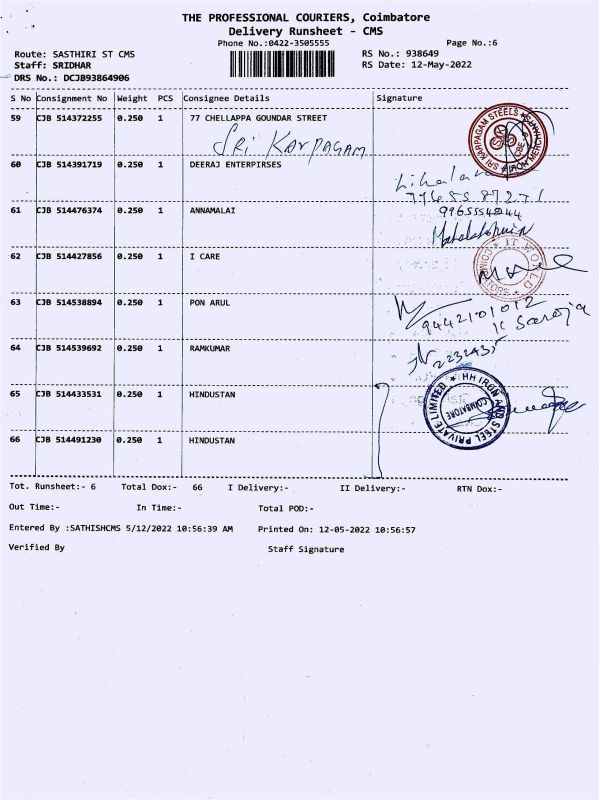 THE PROFESSIONAL COURIERS, Coimbatore
Delivery Runsheet - CMS
Phone No.:0422-3505555
Page No.:6
Route: SASTHIRI ST CMS
RS No.: 938649
Staff: SRIDHAR
RS Date: 12-May-2022
DRS No.: DCJB93864906
S No Consignment No Weight PCS Consignee Details Signature
59 CJB 514372255 0.250 1 77 CHELLAPPA GOUNDAR STREET
SRI KARPAGAM
SRI KARPAGAM STEELS
IRON MERCHANT
60 CJB 514391719 0.250 1 DEERAJ ENTERPIRSES
61 CJB 514476374 0.250 1 ANNAMALAI
62 CJB 514427856 0.250 1 I CARE
IT WORLD
63 CJB 514538894 0.250 1 PON ARUL
9442101012
K Saroja
64 CJB 514539692 0.250 1 RAMKUMAR
2232435
65 CJB 514433531 0.250 1 HINDUSTAN
HH IRON AND STEEL PRIVATE LIMITED
COIMBATORE
66 CJB 514491230 0.250 1 HINDUSTAN
Tot. Runsheet:- 6 Total Dox:- 66 I Delivery:- II Delivery:- RTN Dox:-
Out Time:- In Time:- Total POD:-
Entered By :SATHISHCMS 5/12/2022 10:56:39 AM Printed On: 12-05-2022 10:56:57
Verified By Staff Signature